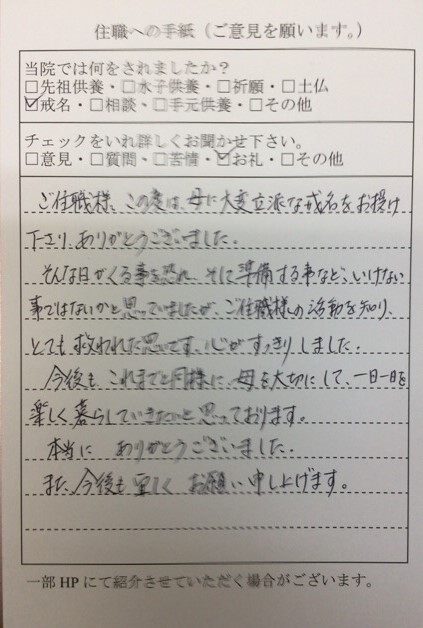 住職への手紙（ご意見を願います。）
当院では何をされましたか？
□先祖供養・□水子供養・□祈願・□土仏
☑戒名・□相談、□手元供養・□その他
チェックをいれ詳しくお聞かせ下さい。
□意見・□質問、□苦情・☑お礼・□その他
ご住職様、この度は、母に大変立派な戒名をお授け
下さり、ありがとうございました。
そんな日がくる事を恐れ、そして準備する事など、いけない
事ではないかと思っていましたが、ご住職様の活動を知り、
とても救われた思いです、心がすっきりしました。
今後も、これまでと同様に、母を大切にして、一日一日を
楽しく暮らしていきたいと思っております。
本当に ありがとうございました。
また、今後も宜しく お願い申し上げます。
一部HPにて紹介させていただく場合がございます。